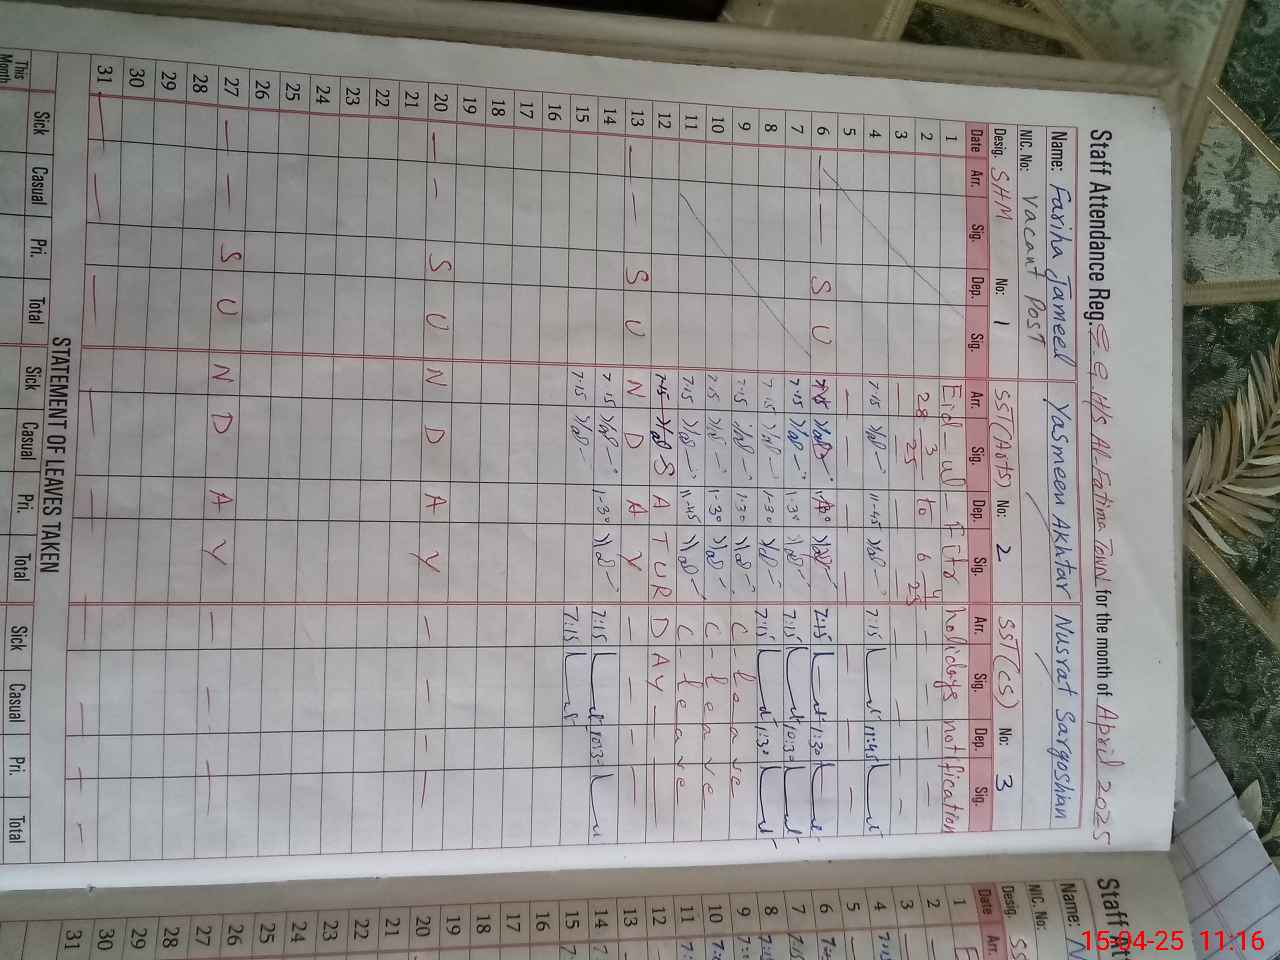 Staff Attendance Reg. G.G.H/S Al-Fatima Town for the month of April 2025
Name: Fariha Jameel Yasmeen Akhtar Nusrat Sargoshian
NIC. No: Vacant Post
Desig. SHM No: 1 SST(Arts) No: 2 SST(CS) No: 3
Date Arr. Sig. Dep. Sig. Arr. Sig. Dep. Sig. Arr. Sig. Dep. Sig.
1 Eid-ul-Fitr holidays notification
2 28 3 25 to 6 4 25
3
4 7:15 11-45 7:15 11:45
5
6 S U 7:15 1:30
7 7:15 1-30 7:15 10:30
8 7:15 1-30 7:15 1:30
9 7:15 1:30 C-leave
10 7:15 1-30 C-leave
11 7:15 11-45 C-leave
12 S A T U R D A Y
13 S U N D A Y
14 7:15 1-30 7:15
15 7:15 7:15
16
17
18
19
20 S U N D A Y
21
22
23
24
25
26
27 S U N D A Y
28
29
30
31
STATEMENT OF LEAVES TAKEN
Sick Casual Pri. Total Sick Casual Pri. Total Sick Casual Pri. Total
This Month
Staff Att
Name: N
NIC. No:
Desig. SS
Date Arr.
1 E
2
3
4
5
6
7
8
9
10
11
12
13
14
15
16
17
18
19
20
21
22
23
24
25
26
27
28
29
30
31
15-04-25 11:16